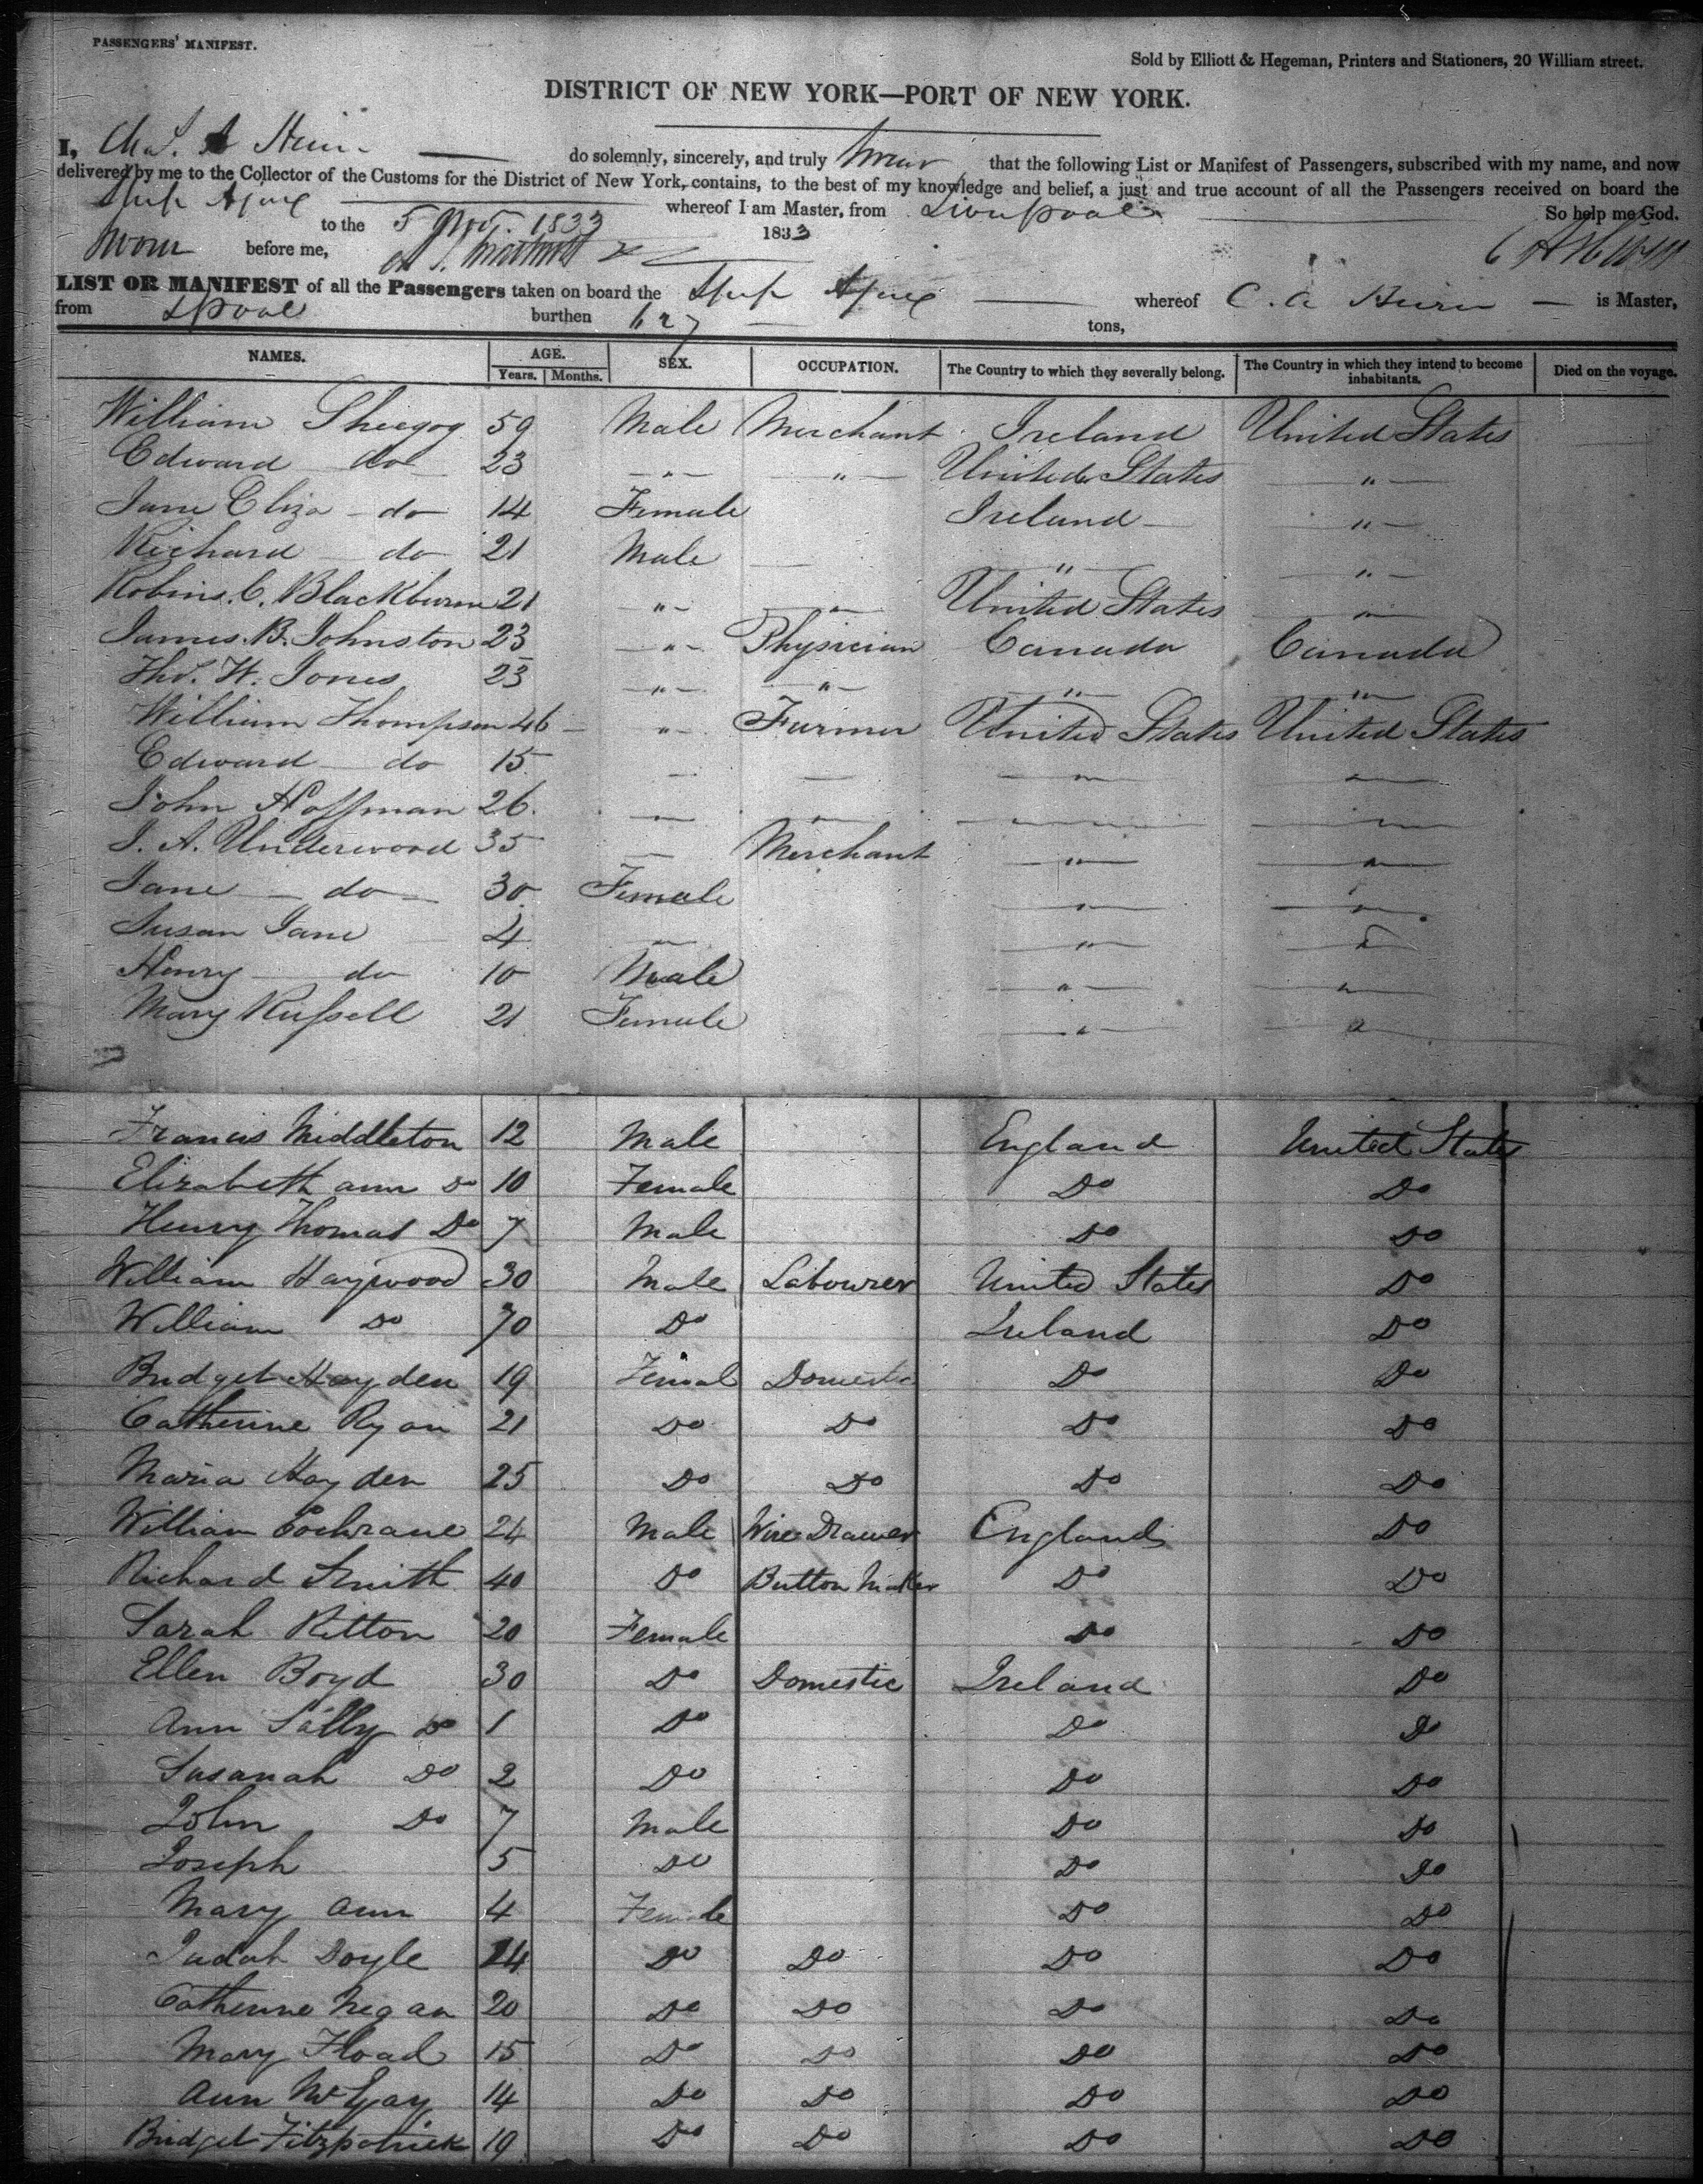 PASSENGERS' MANIFEST.
Sold by Elliott & Hegeman, Printers and Stationers, 20 William street.
DISTRICT OF NEW YORK—PORT OF NEW YORK.
I, Chas. A do solemnly, sincerely, and truly swear that the following List or Manifest of Passengers, subscribed with my name, and now
delivered by me to the Collector of the Customs for the District of New York, contains, to the best of my knowledge and belief, a just and true account of all the Passengers received on board the
Ship Ajax whereof I am Master, from Liverpool So help me God.
to the 5 Nov. 1833 1833
Sworn before me,
LIST OR MANIFEST of all the Passengers taken on board the Ship Ajax whereof C. A is Master,
from Lpool burthen 627 tons,
NAMES. AGE. Years. Months. SEX. OCCUPATION. The Country to which they severally belong. The Country in which they intend to become inhabitants. Died on the voyage.
William Sheegog 59 Male Merchant Ireland United States
Edward do 23 " " United States "
Jane Eliza do 14 Female Ireland "
Richard do 21 Male — " "
Robins. C. Blackburn 21 " " United States "
James. B. Johnston 23 " Physician Canada Canada
Thos. W. Jones 23 " " " "
William Thompson 46 " Farmer United States United States
Edward do 15 — — " "
John Hoffman 26. " " " "
J. A. Underwood 35 — Merchant " "
Jane do 30 Female " "
Susan Jane 4 " " "
Henry do 10 Male " "
Mary Russell 21 Female " "
Francis Middleton 12 Male England United States
Elizabeth ann Do 10 Female Do Do
Henry Thomas Do 7 Male Do Do
William Haywood 30 Male Labourer United States Do
William Do 70 Do Ireland Do
Bridget Hayden 19 Femal Domestic Do Do
Catherine Ryan 21 Do Do Do Do
Maria Hayden 25 Do Do Do Do
William Cochrane 24 Male Wire Drawer England Do
Richard Smith 40 Do Button Maker Do Do
Sarah Ritton 20 Female Do Do
Ellen Boyd 30 Do Domestic Ireland Do
Ann Sally Do 1 Do Do Do
Susanah Do 2 Do Do Do
John Do 7 Male Do Do
Joseph 5 Do Do Do
Mary Ann 4 Female Do Do
Judah Doyle 24 Do Do Do Do
Catherine Negan 20 Do Do Do Do
Mary Fload 15 Do Do Do Do
Ann McGay 14 Do Do Do Do
Bridget Fitzpatrick 19 Do Do Do Do